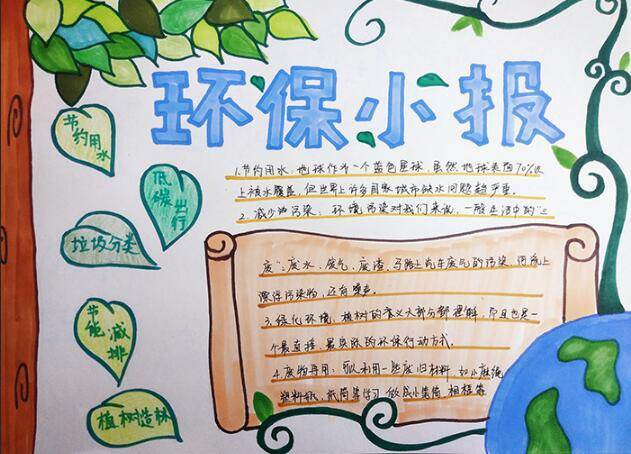 环保小报
节约用水
低碳出行
垃圾分类
节能减排
植树造林
1.节约用水:地球作为一个蓝色星球,虽然地球表面70%以
上被水覆盖,但世界上许多国家城市缺水问题较严重。
2.减少油污染:环境污染对我们来说,一般生活中的"三
废":废水、废气、废渣,马路上汽车废气的污染,河流上
漂浮污染物,还有噪声。
3.绿化环境:植树的意义大部分都理解,而且也是一
个最直接,最实际的环保行动方式。
4.废物再用:可以利用一些废旧材料,如小瓶
塑料瓶,纸筒等学习做成小笔筒,相框等